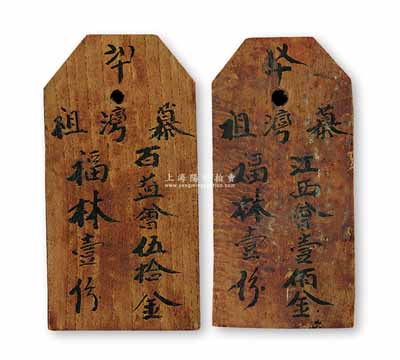 祖湾慕
百益會伍拾金
福林壹份
祖湾慕
江西會壹佰金
福林壹份
上海陽明拍賣
www.yangmingauction.com